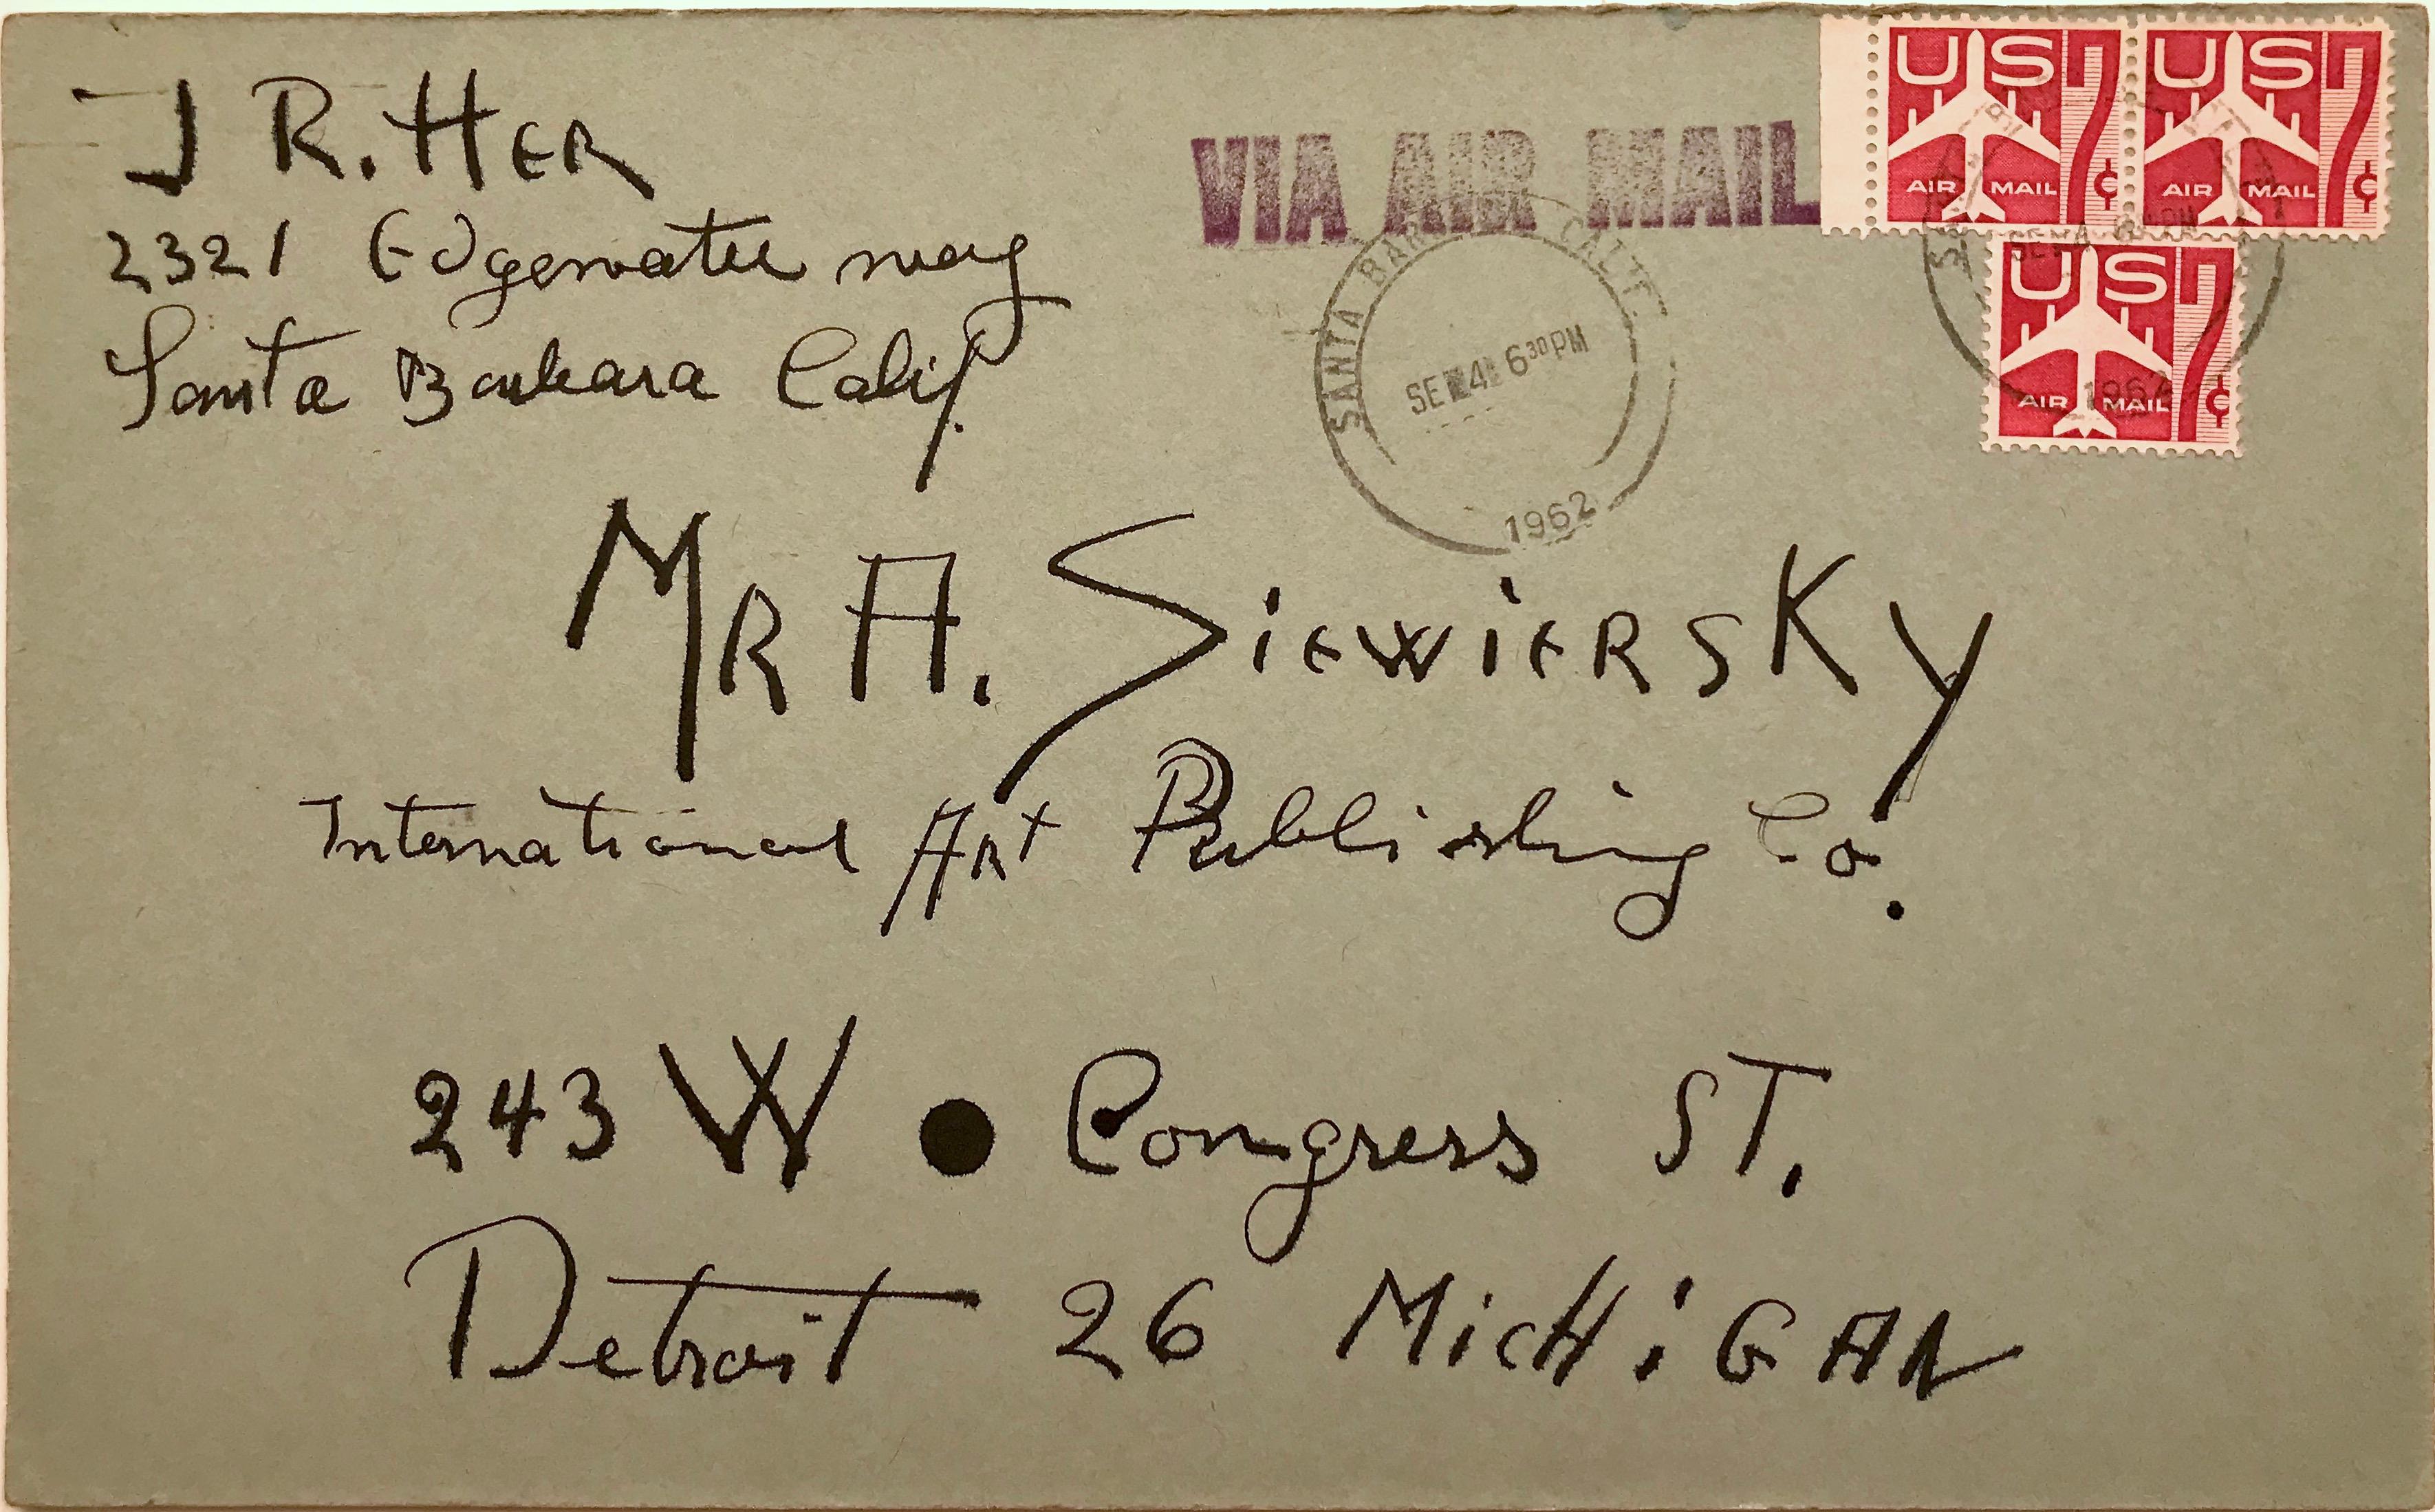 J R. HER
2321 Edgewater way
Santa Barbara Calif.
VIA AIR MAIL
US 7¢
AIR MAIL
US 7¢
AIR MAIL
US 7¢
AIR MAIL
SANTA BAR CALIF.
SEP 4 6 30 PM
1962
1962
MR A. SiEWiERSKY
International ART Publishing Co.
243 W. Congress ST.
Detroit 26 MicHiGAN